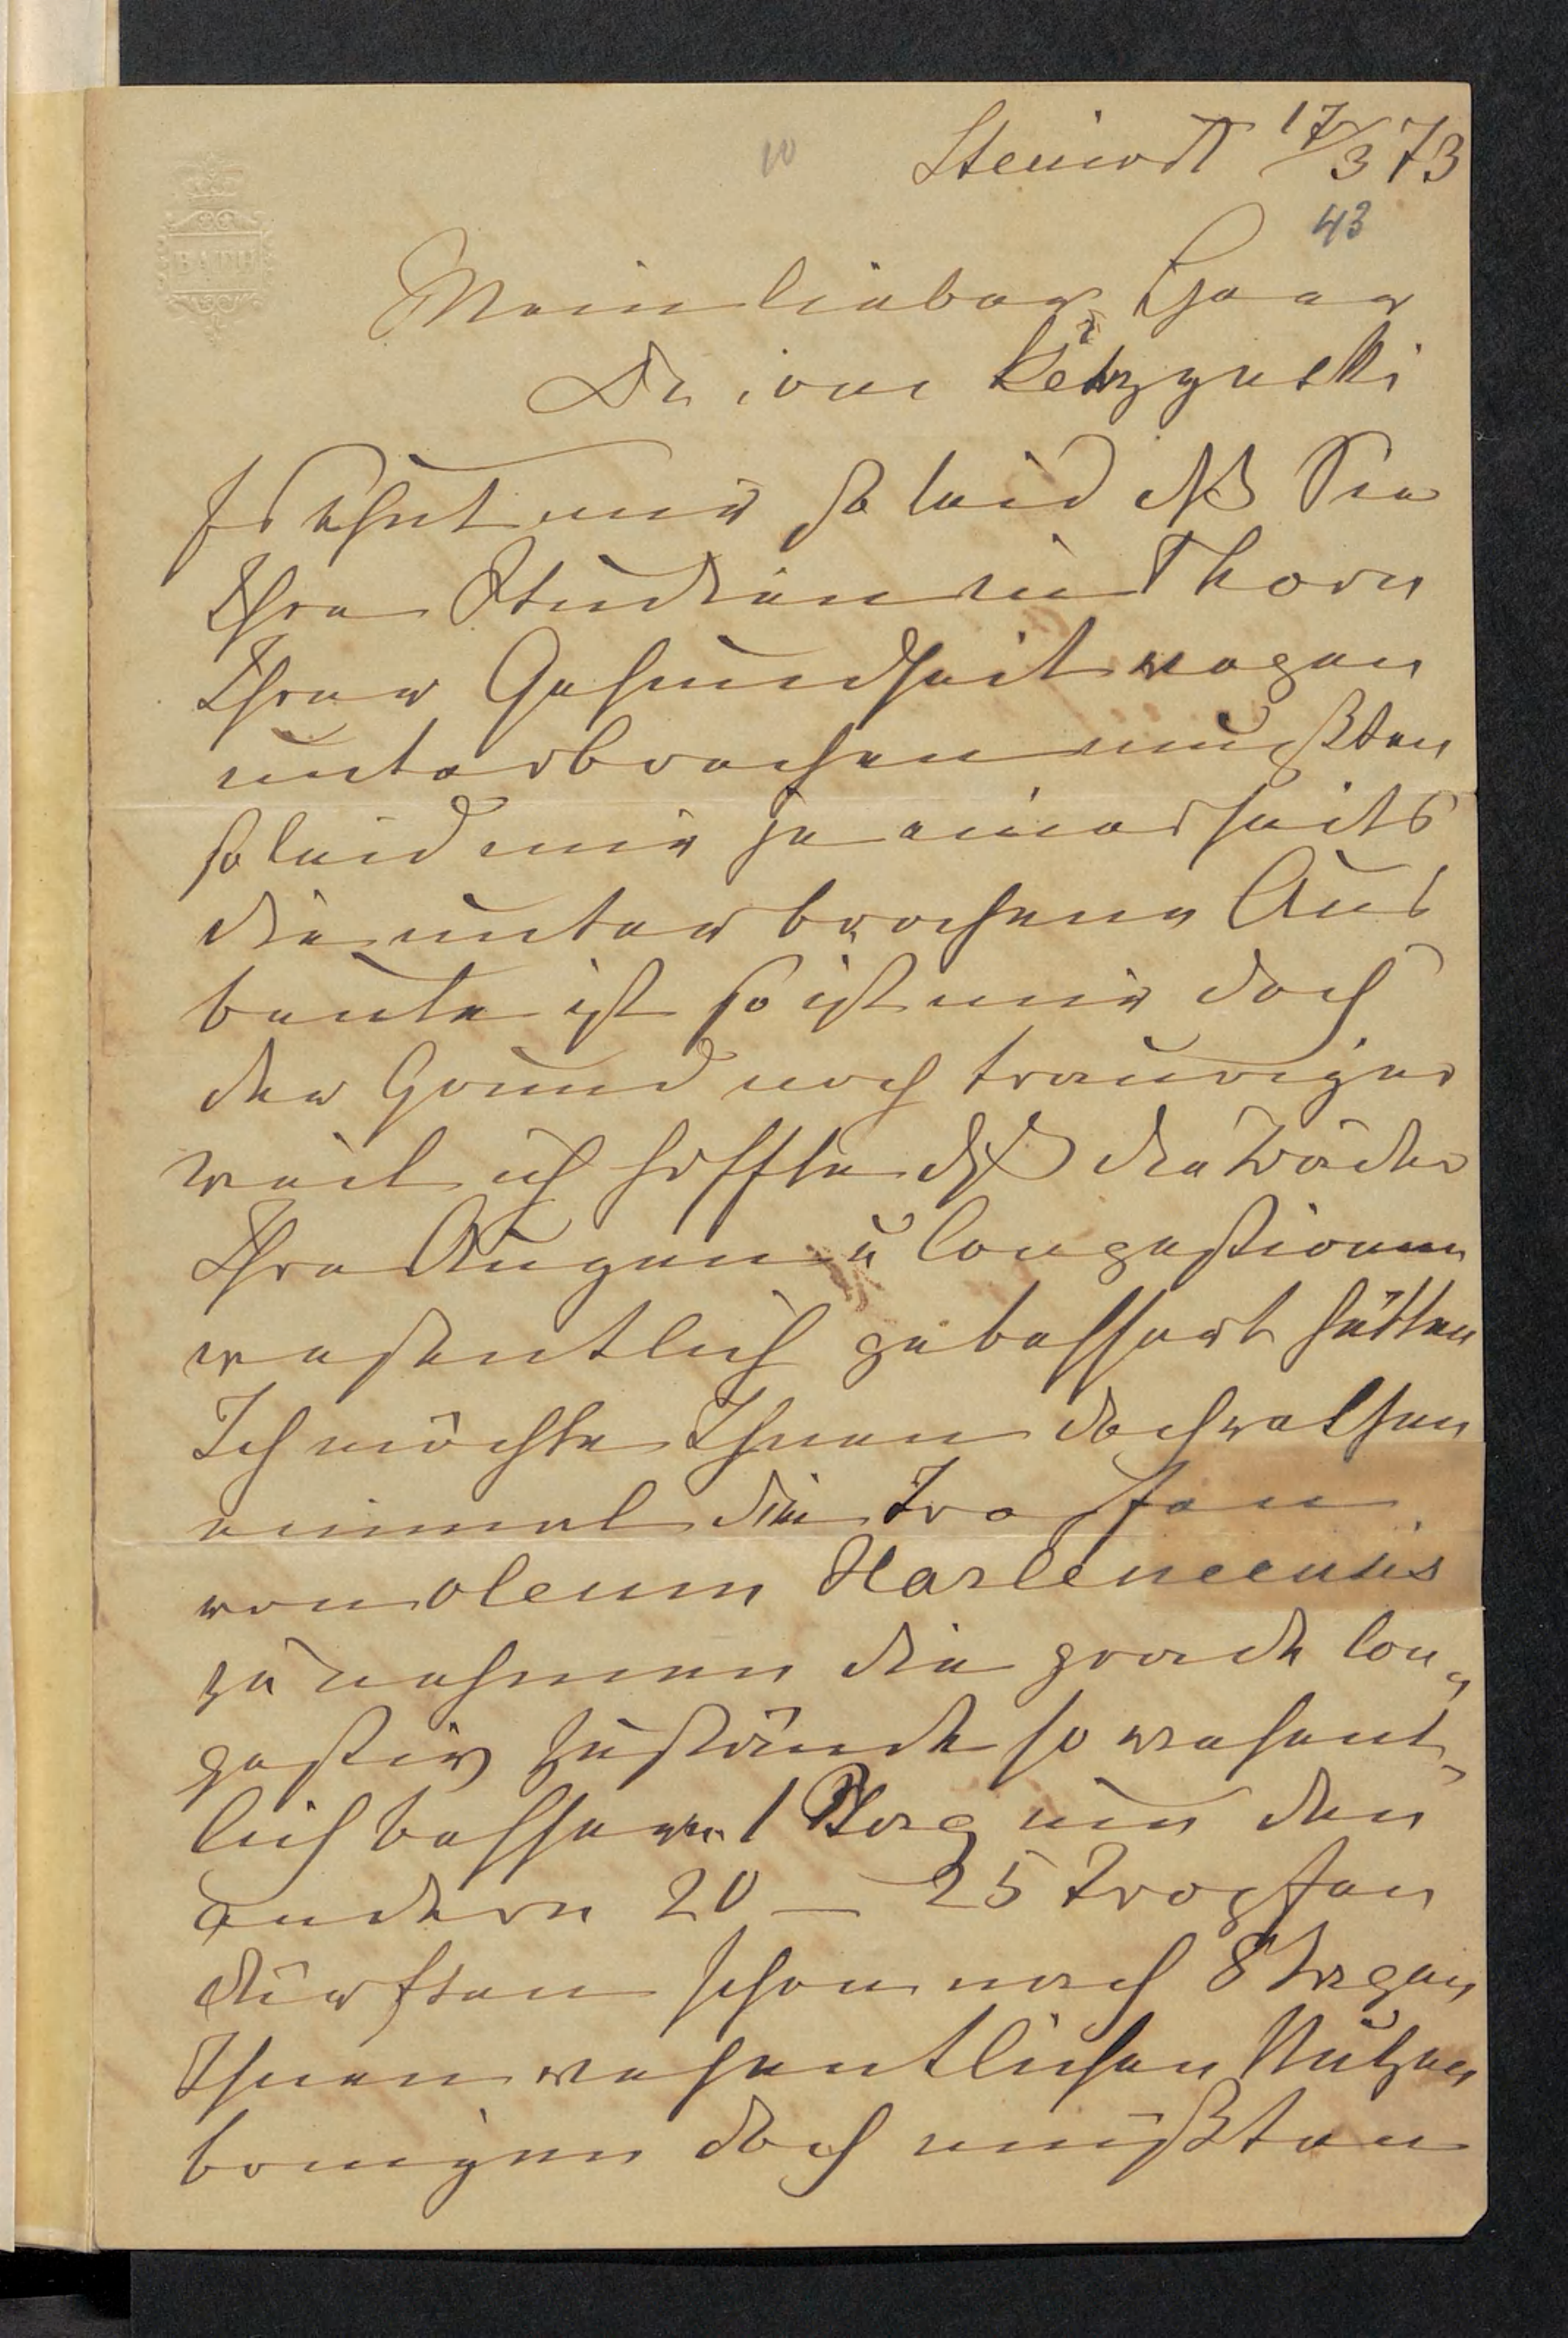 10
Steinort 17/3 73
43
BATH
Mein lieber Herr
Dr. von Kętrzynski
Es thut mir so leid dß Sie
Ihre Studien in Thorn
Ihrer Gesundheit wegen
unterbrechen mußten
so leid mir ja einerseits
die unterbrochene Aus
beute ist so ist mir doch
der Grund noch trauriger
weil ich hoffte dß die Bäder
Ihre Augen u Congestionen
wesentlich gebessert hätten
Ich möchte Ihnen doch rathen
einmal die Tropfen
von oleum Harlemensis
zu nehmen die grade Con-
gestiv Zustände so wesent-
lich bessern. 1 Tag um den
andern 20 — 25 Tropfen
dürften schon nach 8 Tagen
Ihnen wesentlichen Nutzen
bringen doch müßten